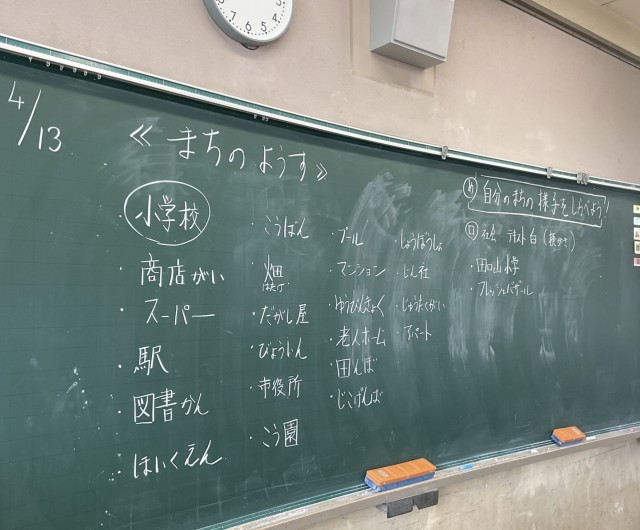 4/13
≪まちのようす≫
小学校
・商店がい
・スーパー
・駅
・図書かん
・ほいくえん
・こうばん
・畑
はたけ
・だがし屋
・びょういん
・市役所
・こう園
・プール
・マンション
・ゆうびんきょく
・老人ホーム
・田んぼ
・じこげんば
・しょうぼうしょ
・じん社
・じゅうたくがい
・アパート
め 自分のまちの様子をしらべよう!
社会 テキスト 白
・フレッシュバザール
5 6 7 8 9